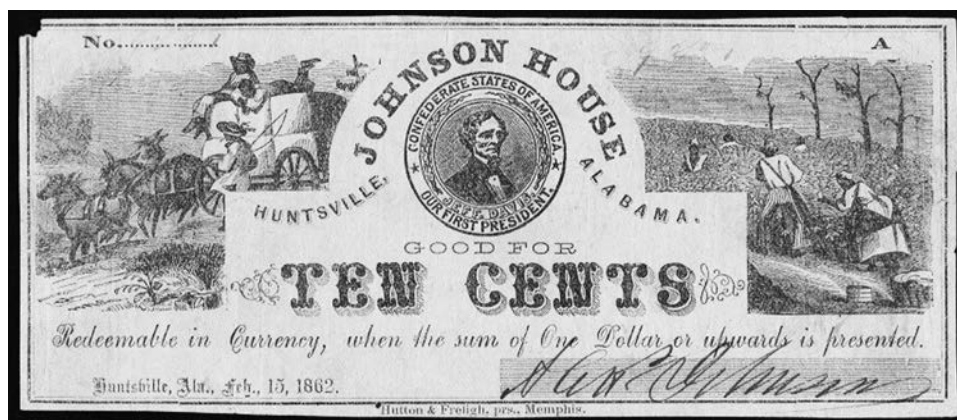 No.
A
JOHNSON HOUSE
CONFEDERATE STATES OF AMERICA.
JEFF. DAVIS.
OUR FIRST PRESIDENT.
HUNTSVILLE, ALABAMA.
GOOD FOR
TEN CENTS
Redeemable in Currency, when the sum of One Dollar or upwards is presented.
Huntsville, Ala., Feb., 15, 1862.
Johnson
Hutton & Freligh, prs., Memphis.